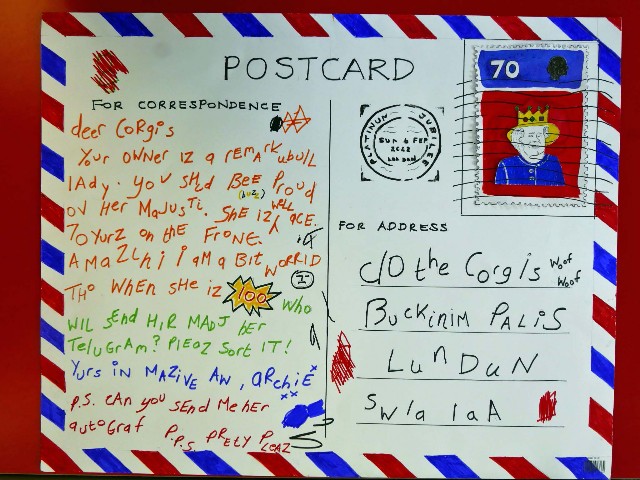 POSTCARD
FOR CORRESPONDENCE
deer CORGis
Your OWNER iz a rEMArkubull
lAdy. you SHud BEE Proud
(buzz)
ov Her MaJusTi. SHE iZ WELL ACE.
70 YurZ on thE FRONE.
AMaZiNi i aM a BiT WORRID
THO WHEN SHe iZ 100 WHO
WiL SEND HiR MADJ Her
TeluGRaM? PlEaZ SORT IT!
YURS iN MAZiVE AW, aRCHiE
xx
P.S. CAn yoU SEND Me Her
autoGraf P.P.S. PRETy PLEAZ
70
PLATINUM JUBILEE
SUN 6 FEB
2022
LONDON
FOR ADDRESS
c/o the Corgis Woof Woof
BuckiNiM PALiS
LunDuN
SW1A 1AA